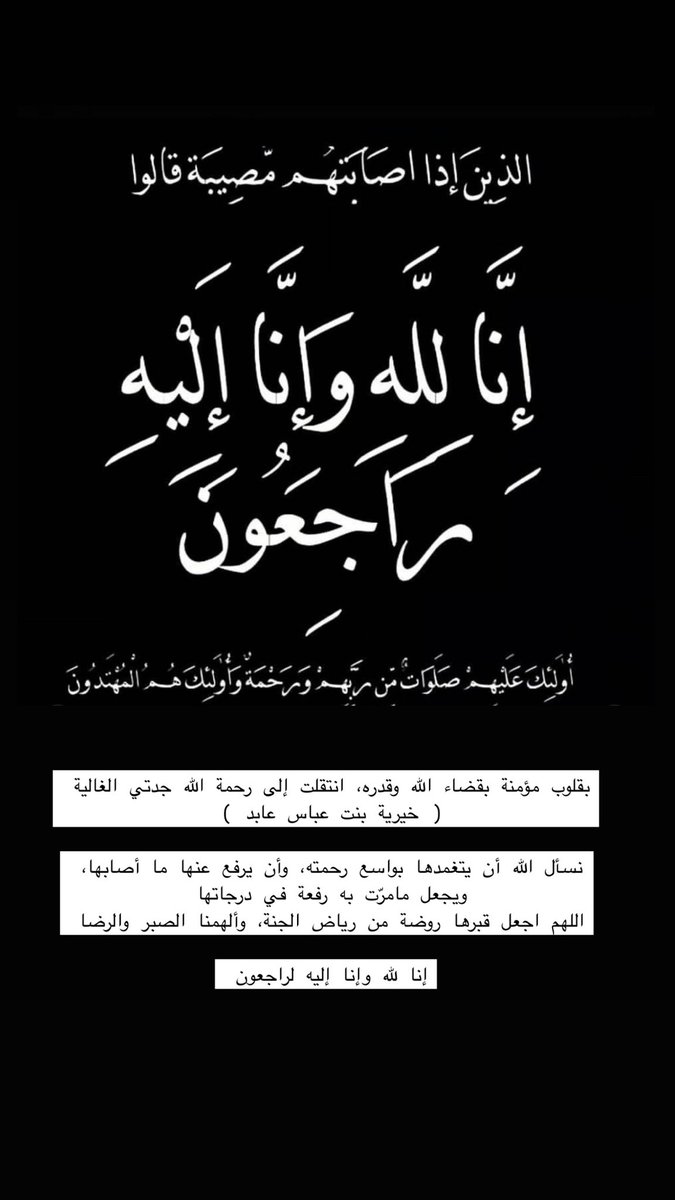 الذِينَ إذا اصَابَتهُم مّصِيبَة قالوا
إِنَّا لِلَّهِ وَإِنَّا إِلَيْهِ
رَاجِعُونَ
أُولَٰئِكَ عَلَيْهِمْ صَلَوَاتٌ مِّن رَبِّهِمْ وَرَحْمَةٌ وَأُولَٰئِكَ هُمُ الْمُهْتَدُونَ
بقلوب مؤمنة بقضاء الله وقدره، انتقلت إلى رحمة الله جدتي الغالية
( خيرية بنت عباس عابد )
نسأل الله أن يتغمدها بواسع رحمته، وأن يرفع عنها ما أصابها،
ويجعل مامرّت به رفعة في درجاتها
اللهم اجعل قبرها روضة من رياض الجنة، وألهمنا الصبر والرضا
إنا لله وإنا إليه لراجعون